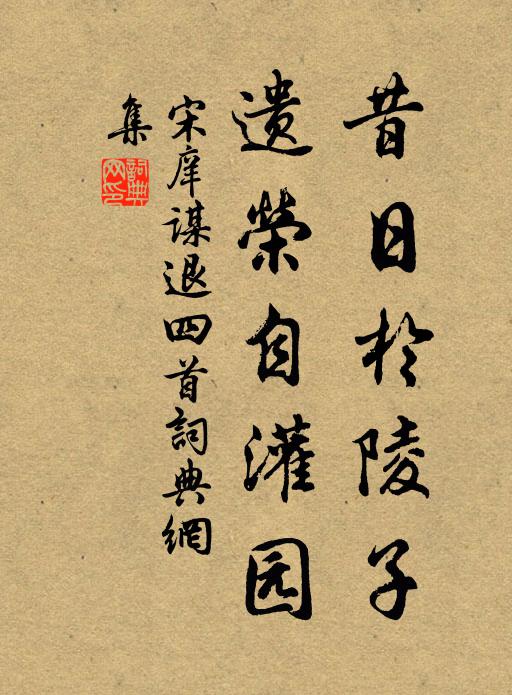 昔日於陵子
遗荣自灌园
宋庠谋退四首詞典網
集
詞典网印